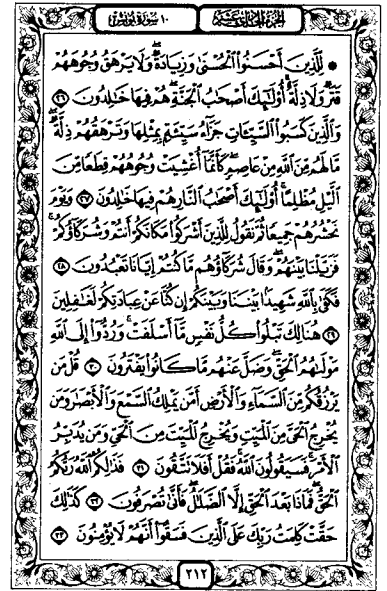 الجزء الحادي عشر ١٠ سورة يونس
۞ لِّلَّذِينَ أَحْسَنُوا۟ ٱلْحُسْنَىٰ وَزِيَادَةٌ ۖ وَلَا يَرْهَقُ وُجُوهَهُمْ
قَتَرٌ وَلَا ذِلَّةٌ ۚ أُو۟لَـٰٓئِكَ أَصْحَـٰبُ ٱلْجَنَّةِ ۖ هُمْ فِيهَا خَـٰلِدُونَ ٢٦
وَٱلَّذِينَ كَسَبُوا۟ ٱلسَّيِّـَٔاتِ جَزَآءُ سَيِّئَةٍۭ بِمِثْلِهَا وَتَرْهَقُهُمْ ذِلَّةٌ ۖ
مَّا لَهُم مِّنَ ٱللَّهِ مِنْ عَاصِمٍ ۖ كَأَنَّمَآ أُغْشِيَتْ وُجُوهُهُمْ قِطَعًا مِّنَ
ٱلَّيْلِ مُظْلِمًا ۚ أُو۟لَـٰٓئِكَ أَصْحَـٰبُ ٱلنَّارِ ۖ هُمْ فِيهَا خَـٰلِدُونَ ٢٧ وَيَوْمَ
نَحْشُرُهُمْ جَمِيعًا ثُمَّ نَقُولُ لِلَّذِينَ أَشْرَكُوا۟ مَكَانَكُمْ أَنتُمْ وَشُرَكَآؤُكُمْ ۚ
فَزَيَّلْنَا بَيْنَهُمْ ۖ وَقَالَ شُرَكَآؤُهُم مَّا كُنتُمْ إِيَّانَا تَعْبُدُونَ ٢٨
فَكَفَىٰ بِٱللَّهِ شَهِيدًۢا بَيْنَنَا وَبَيْنَكُمْ إِن كُنَّا عَنْ عِبَادَتِكُمْ لَغَـٰفِلِينَ
٢٩ هُنَالِكَ تَبْلُوا۟ كُلُّ نَفْسٍ مَّآ أَسْلَفَتْ ۚ وَرُدُّوٓا۟ إِلَى ٱللَّهِ
مَوْلَىٰهُمُ ٱلْحَقِّ ۖ وَضَلَّ عَنْهُم مَّا كَانُوا۟ يَفْتَرُونَ ٣٠ قُلْ مَن
يَرْزُقُكُم مِّنَ ٱلسَّمَآءِ وَٱلْأَرْضِ أَمَّن يَمْلِكُ ٱلسَّمْعَ وَٱلْأَبْصَـٰرَ وَمَن
يُخْرِجُ ٱلْحَىَّ مِنَ ٱلْمَيِّتِ وَيُخْرِجُ ٱلْمَيِّتَ مِنَ ٱلْحَىِّ وَمَن يُدَبِّرُ
ٱلْأَمْرَ ۚ فَسَيَقُولُونَ ٱللَّهُ ۚ فَقُلْ أَفَلَا تَتَّقُونَ ٣١ فَذَٰلِكُمُ ٱللَّهُ رَبُّكُمُ
ٱلْحَقُّ ۖ فَمَاذَا بَعْدَ ٱلْحَقِّ إِلَّا ٱلضَّلَـٰلُ ۖ فَأَنَّىٰ تُصْرَفُونَ ٣٢ كَذَٰلِكَ
حَقَّتْ كَلِمَتُ رَبِّكَ عَلَى ٱلَّذِينَ فَسَقُوٓا۟ أَنَّهُمْ لَا يُؤْمِنُونَ ٣٣
٢١٢